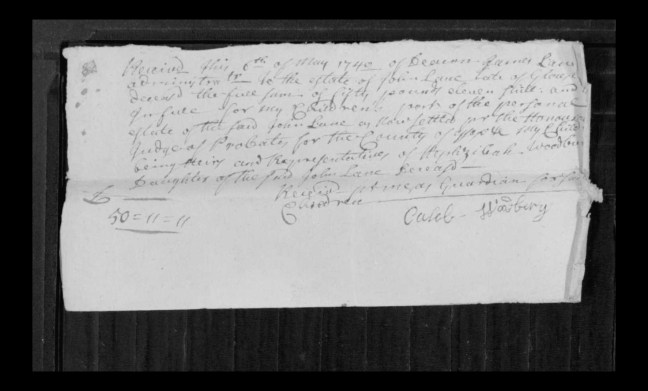 Receivd this 6th of May 1740 of Deacon James Lane
administratr to the estate of John Lane Late of
decesd the full sum of fifty pounds eleven shill: and
in full for my Children's part of the personal
estate of the said John Lane as now settled per the
Judge of Probates for the County of Essex my
being Heirs and Representatives of Hephzibah Woodbury
Daughter of the said John Lane decesd
Receivd per me as Guardian for said
Children
£
50=11=11
Caleb Woodbery